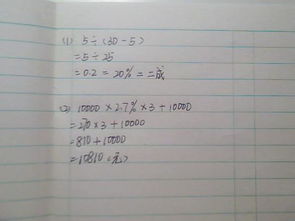 (1) 5÷(30-5)
=5÷25
=0.2=20%=二成
(2) 10000×2.7%×3+10000
=270×3+10000
=810+10000
=10810(元)